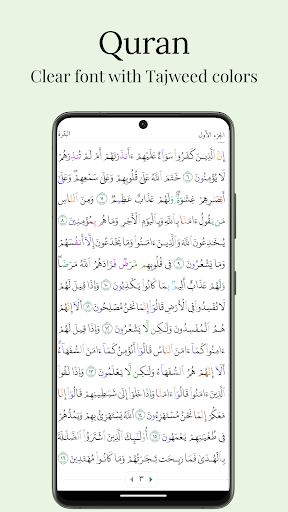 Quran
Clear font with Tajweed colors
الجزء الأول البقرة
إِنَّ ٱلَّذِينَ كَفَرُوا۟ سَوَآءٌ عَلَيْهِمْ ءَأَنذَرْتَهُمْ أَمْ لَمْ تُنذِرْهُمْ
لَا يُؤْمِنُونَ ٦ خَتَمَ ٱللَّهُ عَلَىٰ قُلُوبِهِمْ وَعَلَىٰ سَمْعِهِمْ ۖ وَعَلَىٰٓ
أَبْصَٰرِهِمْ غِشَٰوَةٌ ۖ وَلَهُمْ عَذَابٌ عَظِيمٌ ٧ وَمِنَ ٱلنَّاسِ
مَن يَقُولُ ءَامَنَّا بِٱللَّهِ وَبِٱلْيَوْمِ ٱلْءَاخِرِ وَمَا هُم بِمُؤْمِنِينَ ٨
يُخَٰدِعُونَ ٱللَّهَ وَٱلَّذِينَ ءَامَنُوا۟ وَمَا يَخْدَعُونَ إِلَّآ أَنفُسَهُمْ
وَمَا يَشْعُرُونَ ٩ فِى قُلُوبِهِم مَّرَضٌ فَزَادَهُمُ ٱللَّهُ مَرَضًا ۖ
وَلَهُمْ عَذَابٌ أَلِيمٌۢ بِمَا كَانُوا۟ يَكْذِبُونَ ١٠ وَإِذَا قِيلَ لَهُمْ
لَا تُفْسِدُوا۟ فِى ٱلْأَرْضِ قَالُوٓا۟ إِنَّمَا نَحْنُ مُصْلِحُونَ ١١ أَلَآ إِنَّهُمْ
هُمُ ٱلْمُفْسِدُونَ وَلَٰكِن لَّا يَشْعُرُونَ ١٢ وَإِذَا قِيلَ لَهُمْ
ءَامِنُوا۟ كَمَآ ءَامَنَ ٱلنَّاسُ قَالُوٓا۟ أَنُؤْمِنُ كَمَآ ءَامَنَ ٱلسُّفَهَآءُ ۗ
أَلَآ إِنَّهُمْ هُمُ ٱلسُّفَهَآءُ وَلَٰكِن لَّا يَعْلَمُونَ ١٣ وَإِذَا لَقُوا۟
ٱلَّذِينَ ءَامَنُوا۟ قَالُوٓا۟ ءَامَنَّا وَإِذَا خَلَوْا۟ إِلَىٰ شَيَٰطِينِهِمْ قَالُوٓا۟ إِنَّا
مَعَكُمْ إِنَّمَا نَحْنُ مُسْتَهْزِءُونَ ١٤ ٱللَّهُ يَسْتَهْزِئُ بِهِمْ وَيَمُدُّهُمْ
فِى طُغْيَٰنِهِمْ يَعْمَهُونَ ١٥ أُو۟لَٰٓئِكَ ٱلَّذِينَ ٱشْتَرَوُا۟ ٱلضَّلَٰلَةَ
بِٱلْهُدَىٰ فَمَا رَبِحَت تِّجَٰرَتُهُمْ وَمَا كَانُوا۟ مُهْتَدِينَ ١٦
٣